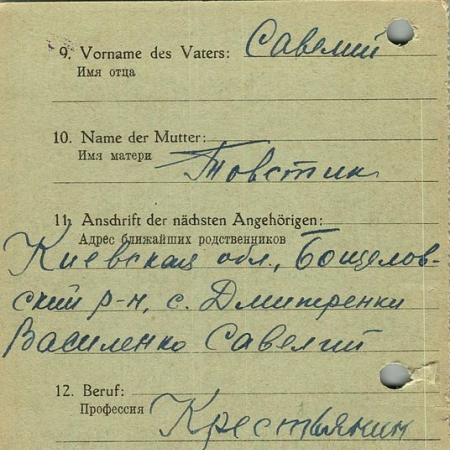 9. Vorname des Vaters: Савелий
Имя отца
10. Name der Mutter:
Имя матери Товстик
11. Anschrift der nächsten Angehörigen:
Адрес ближайших родственников
Киевская обл., Бощелов-
ский р-н, с. Дмитренки
Василенко Савелий
12. Beruf:
Профессия Крестьянин